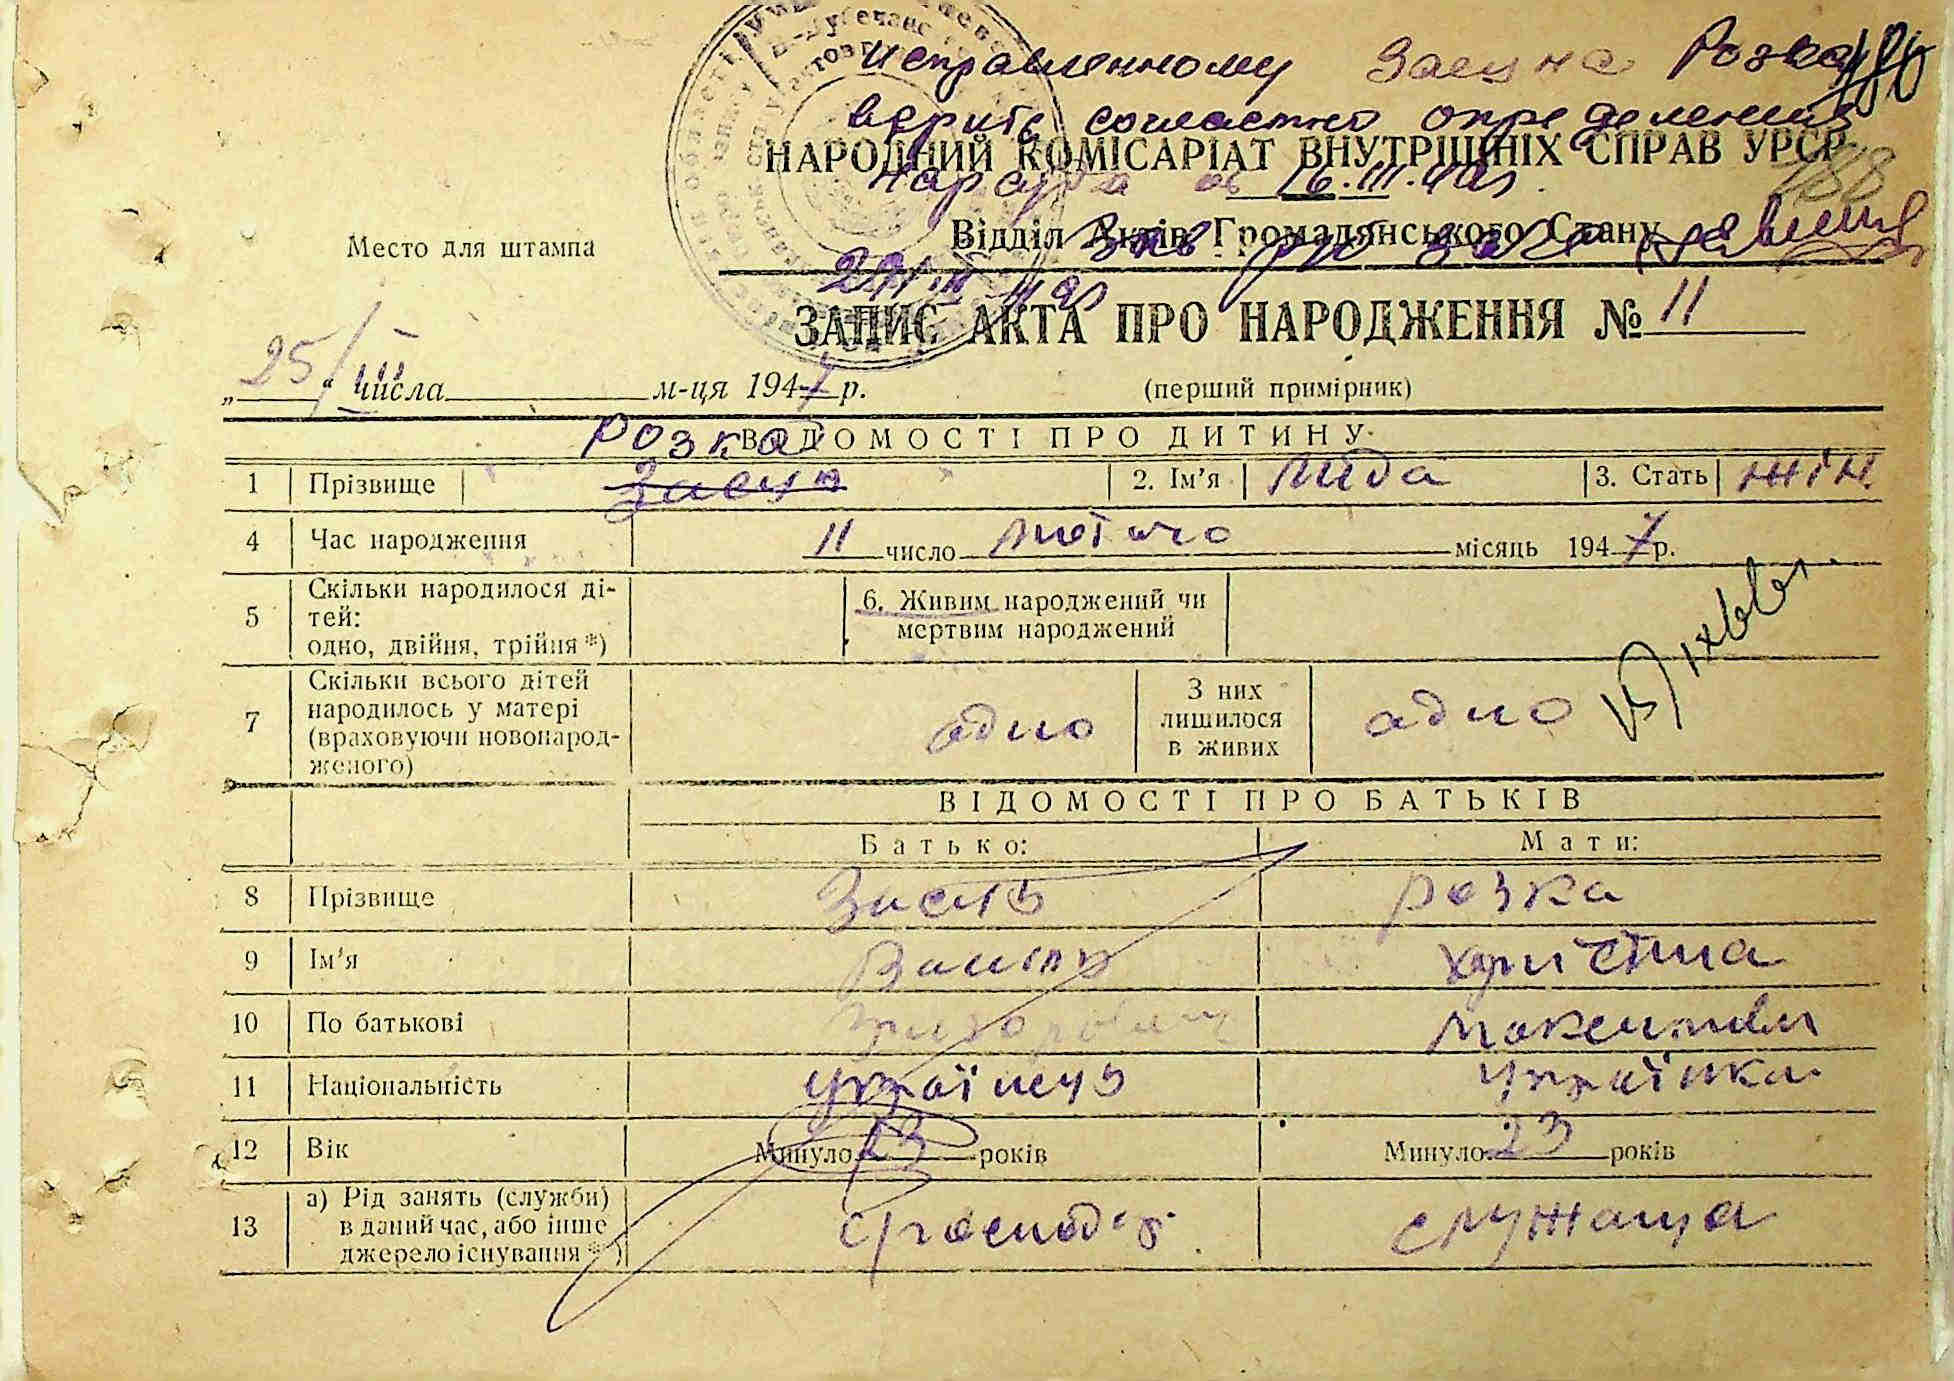 исправленному Заец на Розка
верить согласно определения
НАРОДНИЙ КОМІСАРІАТ ВНУТРІШНІХ СПРАВ УРСР
нарсуда от 16.III.49г.
188
Место для штампа
Відділ Актів Громадянського Стану
ЗАПИС АКТА ПРО НАРОДЖЕННЯ № 11
„25/III“ числа м-ця 1947 р. (перший примірник)
Розка
ВІДОМОСТІ ПРО ДИТИНУ
1 Прізвище Заєць 2. Ім'я Лида 3. Стать жін.
4 Час народження 11 число лютого місяць 1947 р.
5 Скільки народилося ді-
тей:
одно, двійня, трійня *)
6. Живим народжений чи
мертвим народжений
7 Скільки всього дітей
народилось у матері
(враховуючи новонарод-
женого)
одно
З них
лишилося
в живих
одно
ВІДОМОСТІ ПРО БАТЬКІВ
Батько: Мати:
8 Прізвище Заєць Розка
9 Ім'я Василь Христина
10 По батькові
11 Національність українець українка
12 Вік Минуло 23 років Минуло 23 років
13 а) Рід занять (служби)
в даний час, або інше
джерело існування *)
служаща